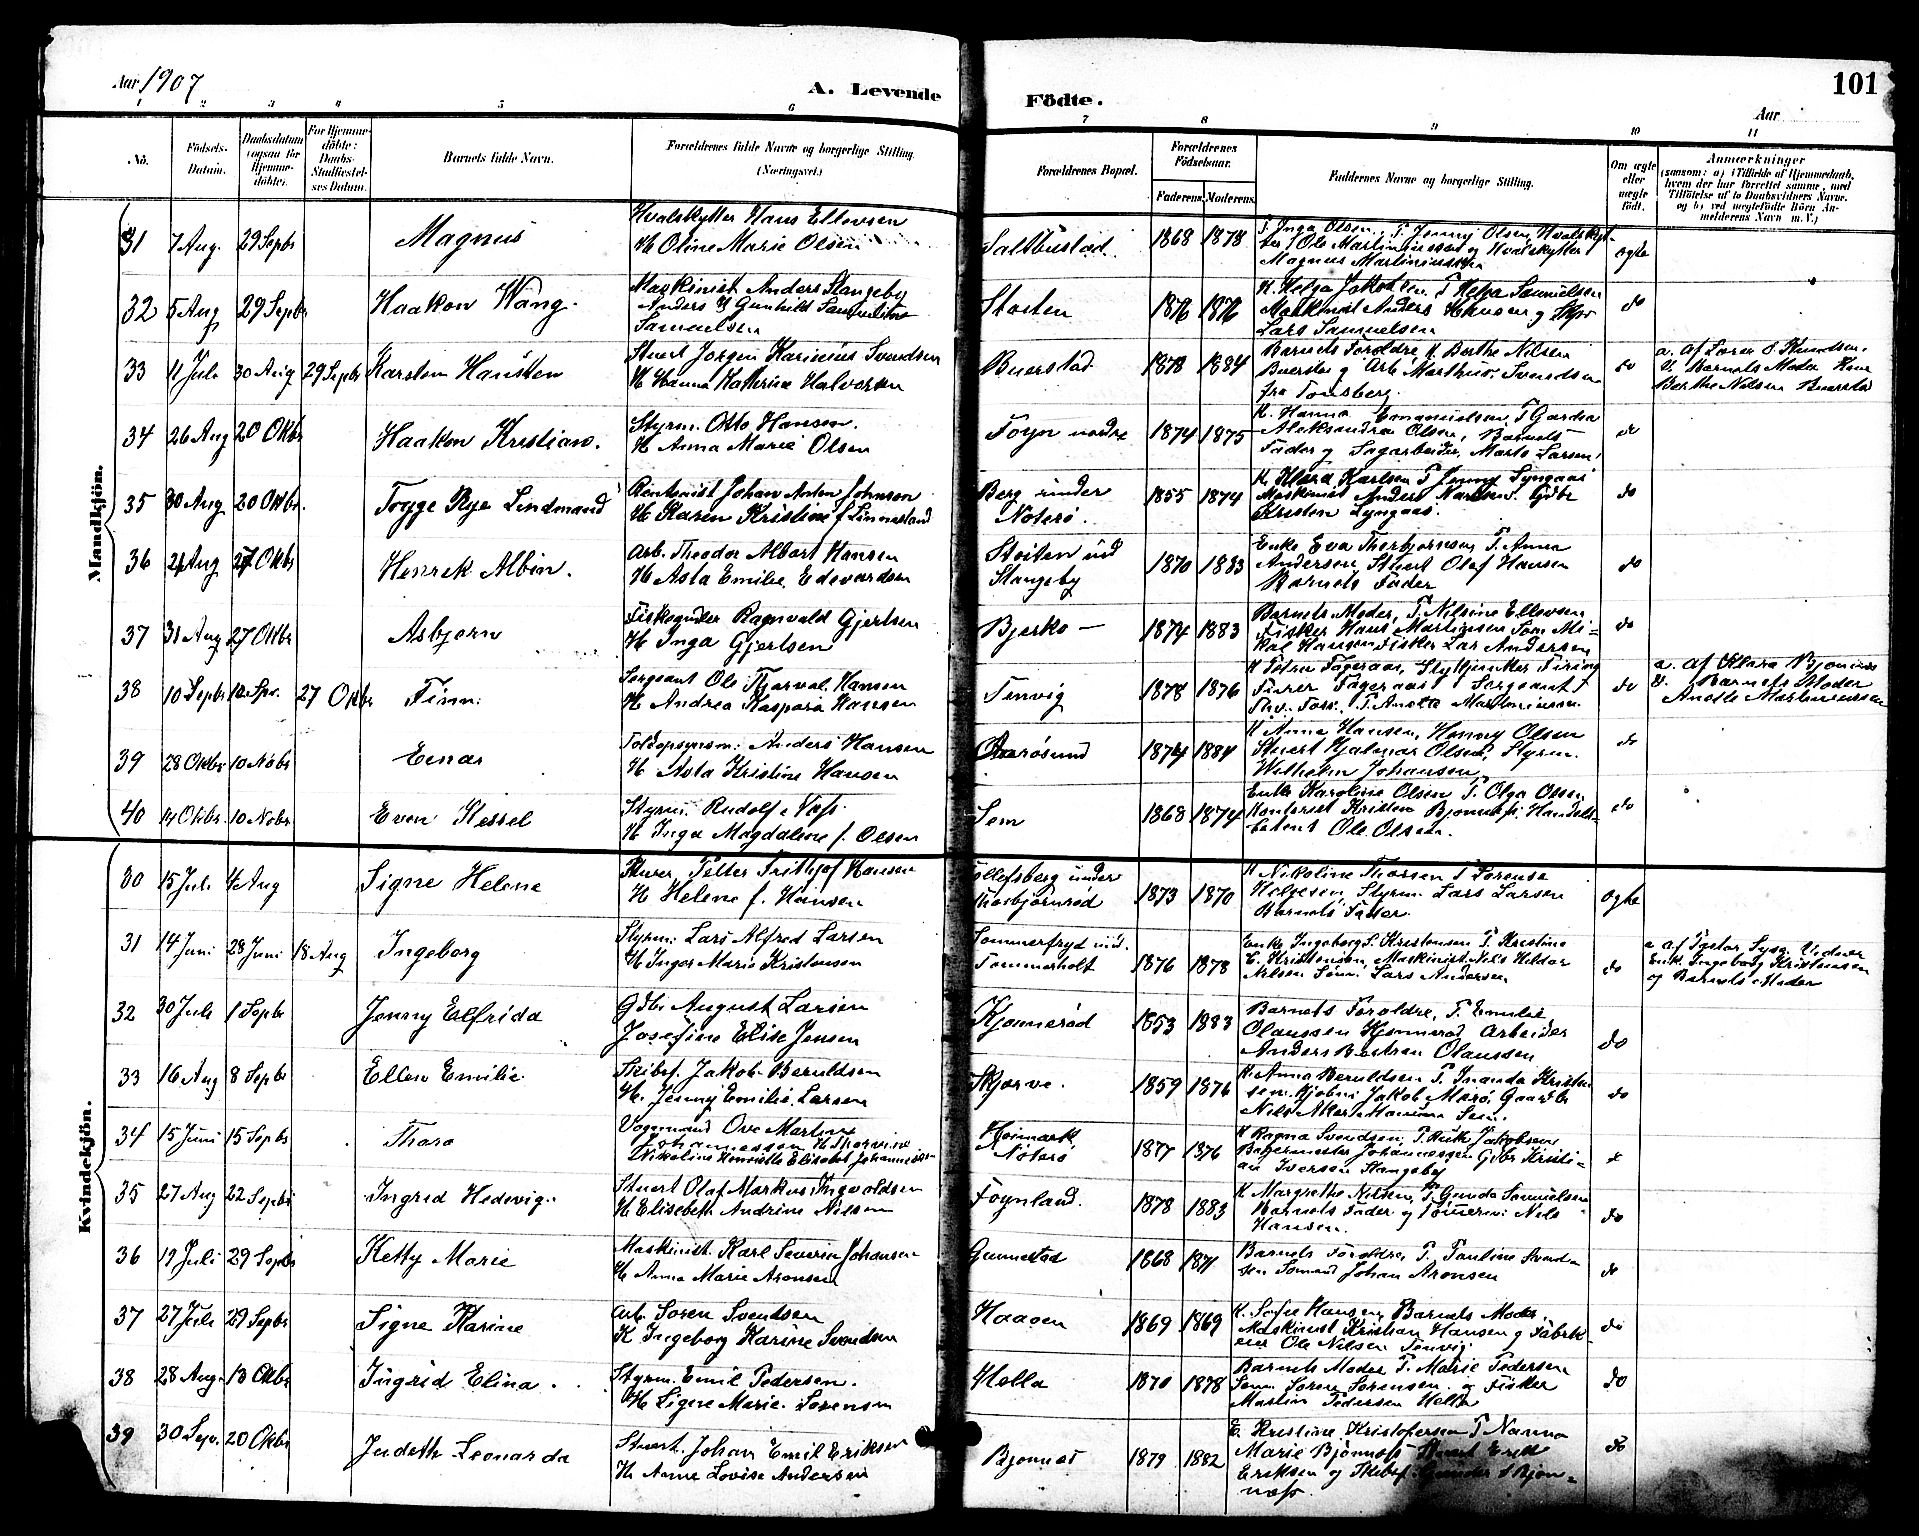 Aar 1907
A. Levende Födte.
101
Aar
1 2 3 4 5 6 7 8 9 10 11
No.
Födsels-Datum.
Daabsdatum (ogsaa for Hjemmedöbte).
For Hjemmedöbte: Daabs-Stadfæstelses Datum.
Barnets fulde Navn.
Forældrenes fulde Navne og borgerlige Stilling. (Næringsvei.)
Forældrenes Bopæl.
Forældrenes Födselsaar.
Faderens. Moderens.
Faddernes Navne og borgerlige Stilling.
Om ægte eller uægte födt.
Anmærkninger
(saasom: a) i Tilfælde af Hjemmedaab, hvem der har forrettet samme, med Tilföielse af to Daabsvidners Navne, og b) ved uægtefödte Börn Anmelderens Navn m. V.)
Mandkjön.
31 7 Aug. 29 Septbr Magnus Hvalskytter Hans Ellevsen
H Oline Marie Olsen Saltbustad 1868 1878 T. Inga Olsen, T. Jenny Olsen, Hvalskyt-
ter Ole Martiniussen og Hvalskytter
Magnus Martiniussen ægte
32 5 Aug 29 Septbr Haakon Wang. Maskinist Anders Stangeby
Anders H Gunhild
Samuelsen Stoiten 1876 1876 K. Helga Jakobsen. T Helga Samuelsen
Maskinist Anders Hansen og Skpr
Lars Samuelsen do
33 11 Juli 30 Aug 29 Septbr Karsten Hansten Stuert Jorgen Karinius Svendsen
H Hanna Kathrine Halvorsen Buerstad 1878 1884 Barnets Foroldre, K. Berthe Nilsen
Buerstad og Arb. Marthus Svendsen
fra Tonsberg. do a. Af Lærer S. Knudsen.
V. Barnets Moder Kone
Berthe Nilsen Buerstad
34 26 Aug 20 Oktbr Haakon Kristian. Styrm. Otto Hansen.
H Anna Marie Olsen Foyn nordre 1874 1875 K. Hanna Emanuelsen, T Garda
Aleksandra Olsen, Barnets
Fader og Sagarbeider, Marts Larsen. do
35 30 Aug 20 Oktbr. Trygge Rye Lindmand Rentenist Johan Anton Johnsen
H Karen Kristine f. Linnestad Berg under
Noterö. 1855 1874 K. Klara Karlsen T Jenny Lyngaas
Maskinist Anders Narsen. Gdbr
Kristen Lyngaas. do
36 21 Aug 27 Oktbr Henrik Albin. Arb. Theodor Albert Hansen
H Asta Emilie Edevardsen Stoiten ud
Stangeby 1870 1883 Enke Eva Therbjornsen, T. Anna
Andersen, Stuert Olaf Hansen
Barnets Fader do
37 31 Aug 27 Oktbr Asbjorn Fiskogunder Ragnvald Gjertsen
H Inga Gjertsen Bjerko — 1874 1883 Barnets Moder, T. Nilsine Ellevsen
Fisker Hans Martinsen, Som. Mi-
kal Hansen, Fisker Lar Andersen do
38 10 Septbr 10 Spr. 27 Oktbr Finn. Sergeant Ole Thorval Hansen
H Andrea Kaspara Hansen Tenvig 1878 1876 do a. Af Klara Bjonnes
V. Barnets Moder
Anette Martiniussen
39 28 Oktbr 10 Nobr Einar Toldopsynsm: Anders Hansen
H. Asta Kristine Hansen Aarösund 1874 1884 K Anna Hansen, Henny Olsen
Stuert Hjalmar Olsen, Styrm.
Wilhelm Johansen do
40 14 Oktbr. 10 Nobr Even Kessel Styrm. Rudolf Næs.
H Inga Magdaline f. Olsen Sem 1868 1874 Enke Karoline Olsen T. Olga Olsen
Kontorist Kristen Bjonnes, Handels-
betjent Ole Olsen. do
Kvindekjön.
30 15 Juli 4 Aug Signe Helene Petter Frithjof Hansen
H Helene f. Hansen ollefsberg under
1873 1870 K Nikoline Thorsen T Lorense
Helgesen, Styrm. Lars Larsen
Barnets Fader. ægte
31 14 Juni 28 Juni 18 Aug Ingeborg Styrm. Lars Alfred Larsen
H Inger Marie Kristensen Sommerfryd und.
Tommerholt 1876 1878 Enke Ingeborg S. Kristensen T. Kristine
E. Kristensen, Maskinist Nils Hildar
Nilsen Som. Lars Andersen do a Af Pastor
Enk. Ingeborg Kristensen
og Barnets Moder
32 30 Juli 1 Septbr Jenny Elfrida Gdbr August Larsen
Josefine Elise Jensen Kjonnerød 1853 1883 Barnets Foroldre, T. Emilie
Olaussen Kjonnerod Arbeider
Anders Bastian Olaussen do
33 16 Aug 8 Septbr Ellen Emilie Skibsf. Jakob Beruldsen
H. Jenny Emilie Larsen Skjerve. 1859 1876 K. Anna Beruldsen T. Inanda Kristen
sen. Kjobm. Jakob Marö. Gaardbr
Nils Aker Sem. do
34 15 Juni 15 Septbr Thora Vognmand Ove Martin
Johannessen H Thorvine
Nikoline Henriette Elisabet Johannessen Heimark
Nöterö 1877 1876 K Ragna Svendsen, T. Ruth Jakobsen
Bagermester Johannessen Gdbr Kristi-
an Iversen Stangeby
35 27 Aug 22 Septbr Ingrid Hedevig. Stuert Olaf Markus Ingvoldsen
H Elisebeth Andrine Nilsen Foynland. 1878 1883 K Margrethe Nilsen, T Gunda Samuelsen
Barnets Fader og Tömerm. Nils
Hansen. do
36 19 Juli 29 Septbr Ketty Marie Maskinist. Karl Severin Johansen
H Anna Marie Aronsen Gunnestad 1868 1871 Barnets Foroldre, T. Pauline Svend-
sen Somand Johan Aronsen do
37 27 Juli 29 Septbr Signe Karine Arb. Soren Svendsen
K Ingeborg Karine Svendsen Haaøen 1869 1869 K. Sofie Hansen, Barnets Moder,
Maskinist Kristian Hansen og Fabrk-
eier Ole Nilsen Tenvig. do
38 28 Aug. 13 Oktbr Ingrid Elina. Styrm. Emil Pedersen.
H Signe Marie Sorensen Holla 1870 1878 Barnets Moder T. Marie Pedersen
Som. Soren Sorensen. og Fisker
Martin Pedersen Holla do
39 30 Sep. 20 Oktbr Judith Leonarda Stuert. Johan Emil Eriksen
H. Anne Lovise Andersen Bjonnes 1879 1882 E. Kristine Kristofersen T Nanna
Marie Bjönnes Stuert Erik
Eriksen og Skibsf. Gunder S Bjon-
næss. do